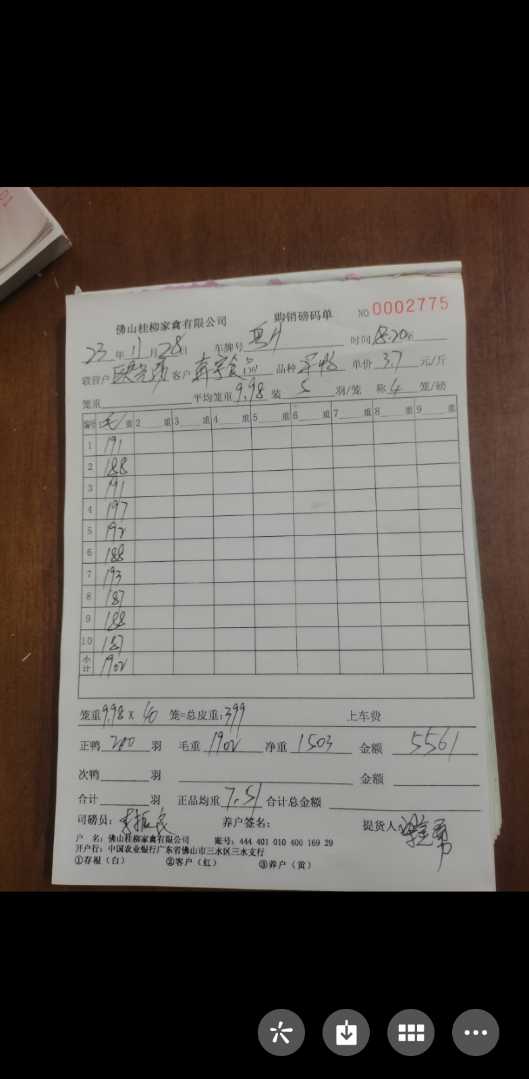 佛山桂柳家禽有限公司 购销磅码单 NO 0002775
23年11月28日 车牌号 时间 8:20
联营户 客户 品种 单价 3.7 元/斤
笼重 平均笼重 9.98 装 5 羽/笼 称 4 笼/磅
编号 毛重 2 重 3 重 4 重 5 重 6 重 7 重 8 重 9 重
1 191
2 188
3 191
4 197
5 192
6 188
7 193
8 187
9 188
10 187
小计 1902
笼重 9.98 x 40 笼=总皮重: 399 上车费
正鸭 200 羽 毛重 1902 净重 1503 金额 5561
次鸭 羽 金额
合计 羽 正品均重 7.51 合计总金额
司磅员: 养户签名: 提货人
户 名: 佛山桂柳家禽有限公司 账号: 444 401 010 400 169 29
开户行: 中国农业银行广东省佛山市三水区三水支行
①存根(白) ②客户(红) ③养户(黄)